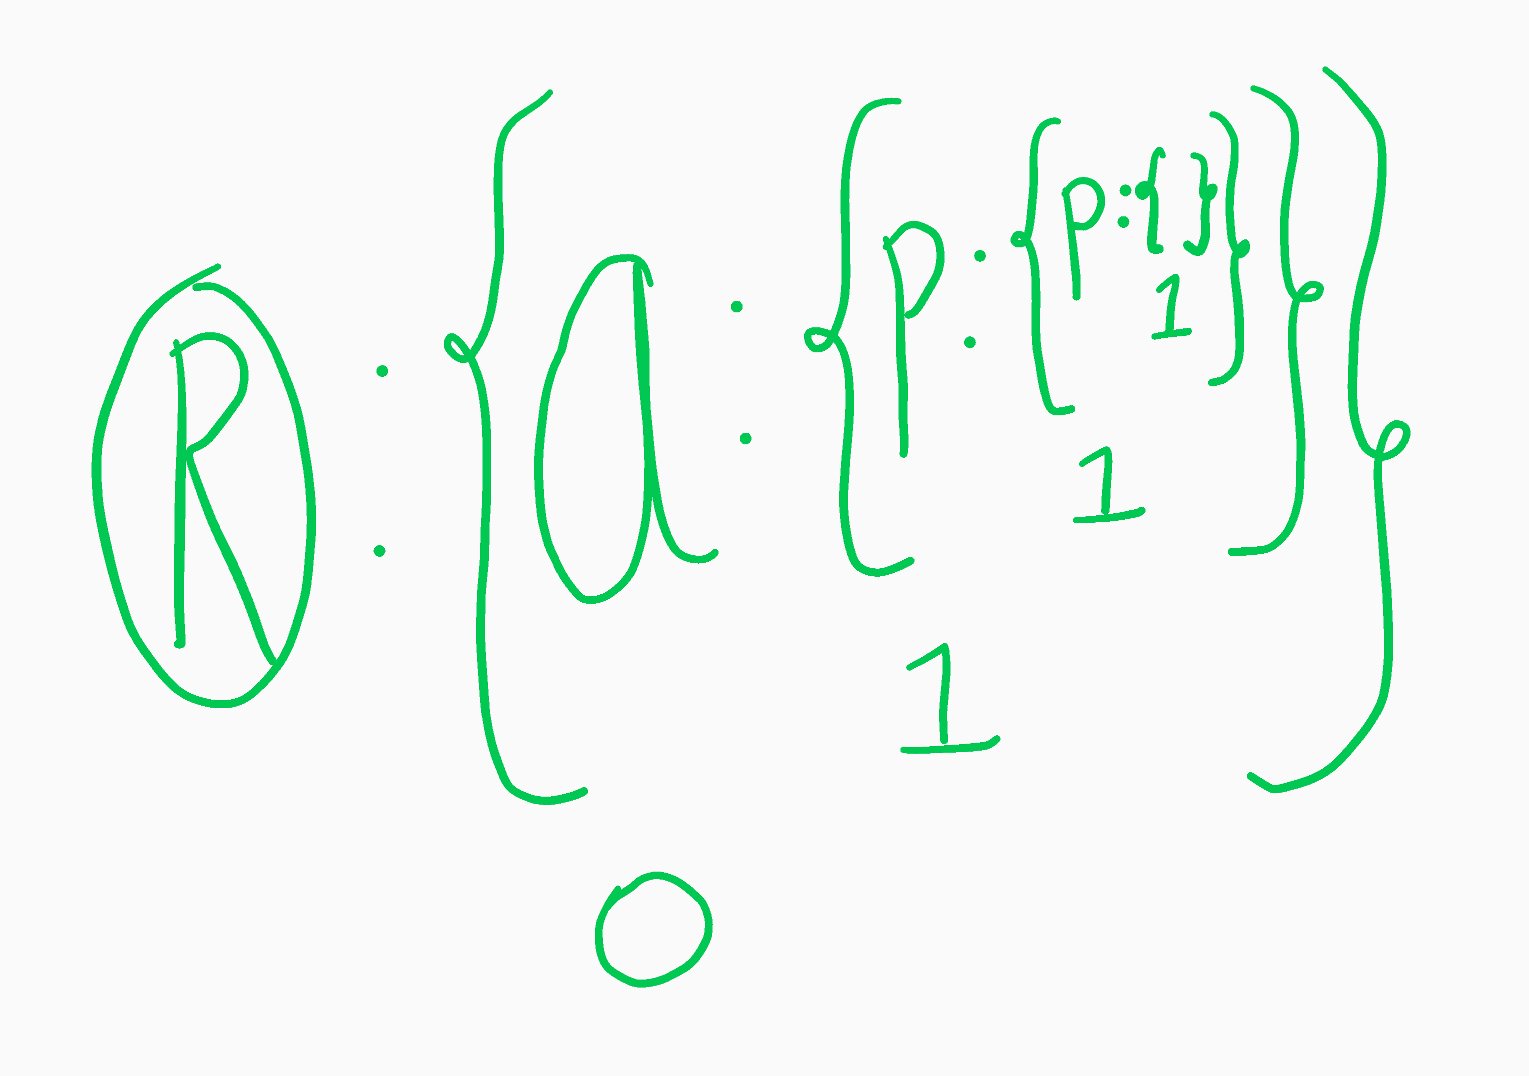 R : { a : { p : { p : { } } } }
1
1
1
0